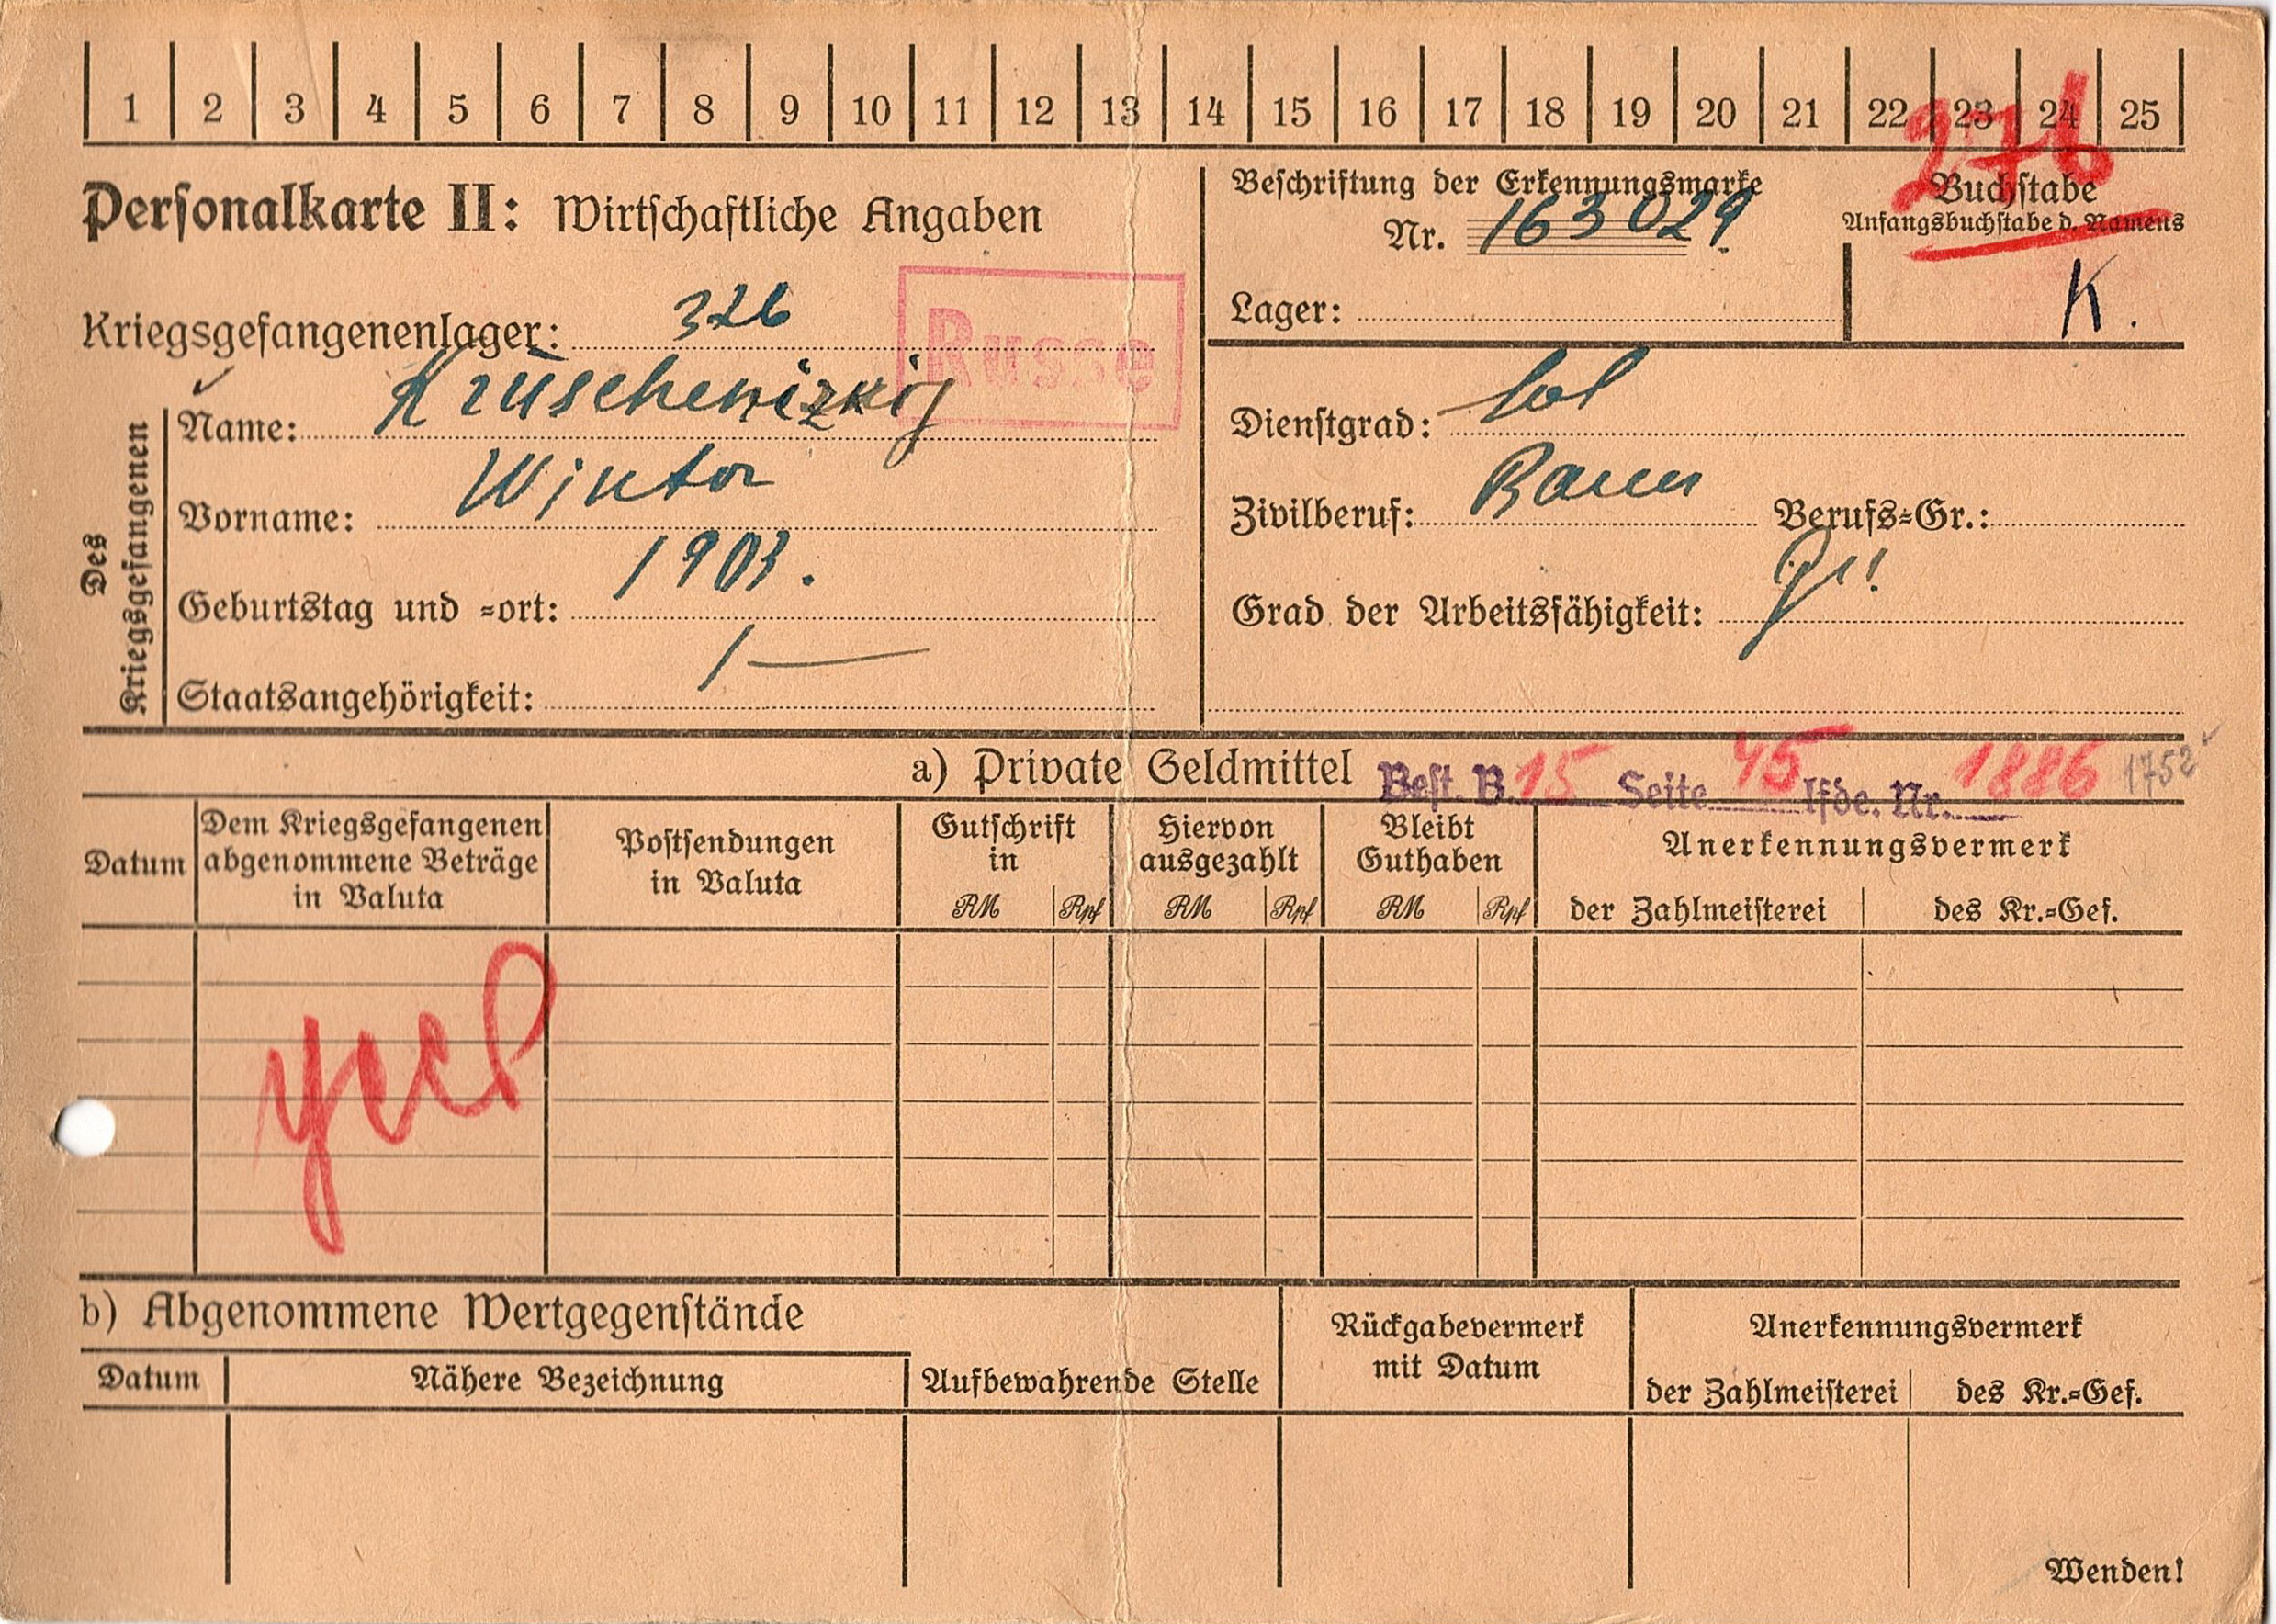 1 2 3 4 5 6 7 8 9 10 11 12 13 14 15 16 17 18 19 20 21 22 23 24 25
276
Personalkarte II: Wirtschaftliche Angaben
Beschriftung der Erkennungsmarke
Nr. 163 029
Lager:
Buchstabe
Anfangsbuchstabe d. Namens
K.
Kriegsgefangenenlager: 326
Russe
Des Kriegsgefangenen
Name: Kruschenizkij
Vorname: Wiktor
Geburtstag und =ort: 1903.
Staatsangehörigkeit: /—
Dienstgrad: Sol
Zivilberuf: Bauer Berufs=Gr.:
Grad der Arbeitsfähigkeit:
a) Private Geldmittel
Best. B. 15 Seite 45 lfde. Nr. 1886 1752
Datum
Dem Kriegsgefangenen
abgenommene Beträge
in Valuta
Postsendungen
in Valuta
Gutschrift
in
RM Rpf
Hiervon
ausgezahlt
RM Rpf
Bleibt
Guthaben
RM Rpf
Anerkennungsvermerk
der Zahlmeisterei
des Kr.=Gef.
b) Abgenommene Wertgegenstände
Datum
Nähere Bezeichnung
Aufbewahrende Stelle
Rückgabevermerk
mit Datum
Anerkennungsvermerk
der Zahlmeisterei
des Kr.=Gef.
Wenden!